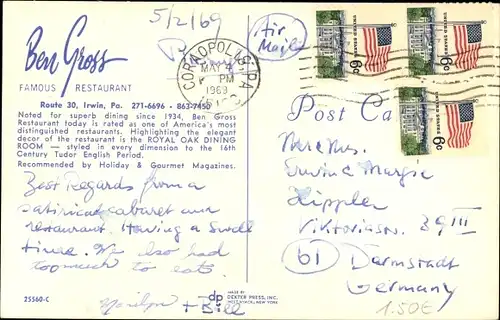 5/2/69
Air
Mail
Ben Gross
FAMOUS RESTAURANT
CORAOPOLIS, PA
MAY 4
PM
1969
6c UNITED STATES
6c UNITED STATES
6c UNITED STATES
Route 30, Irwin, Pa. 271-6696 - 863-7450
Noted for superb dining since 1934, Ben Gross
Restaurant today is rated as one of America's most
distinguished restaurants. Highlighting the elegant
decor of the restaurant is the ROYAL OAK DINING
ROOM — styled in every dimension to the 16th
Century Tudor English Period.
Recommended by Holiday & Gourmet Magazines.
Post Card
Best Regards from a
satirical cabaret and
restaurant. Having a swell
time. We also had
too much to eat.
Marilyn + Bill
Mr & Mrs.
Erwin & Marga
Zippler
Viktoriastr. 39 III
61 Darmstadt
Germany
1.50€
25560-C
dp
MADE BY
DEXTER PRESS, INC.
WEST NYACK, NEW YORK